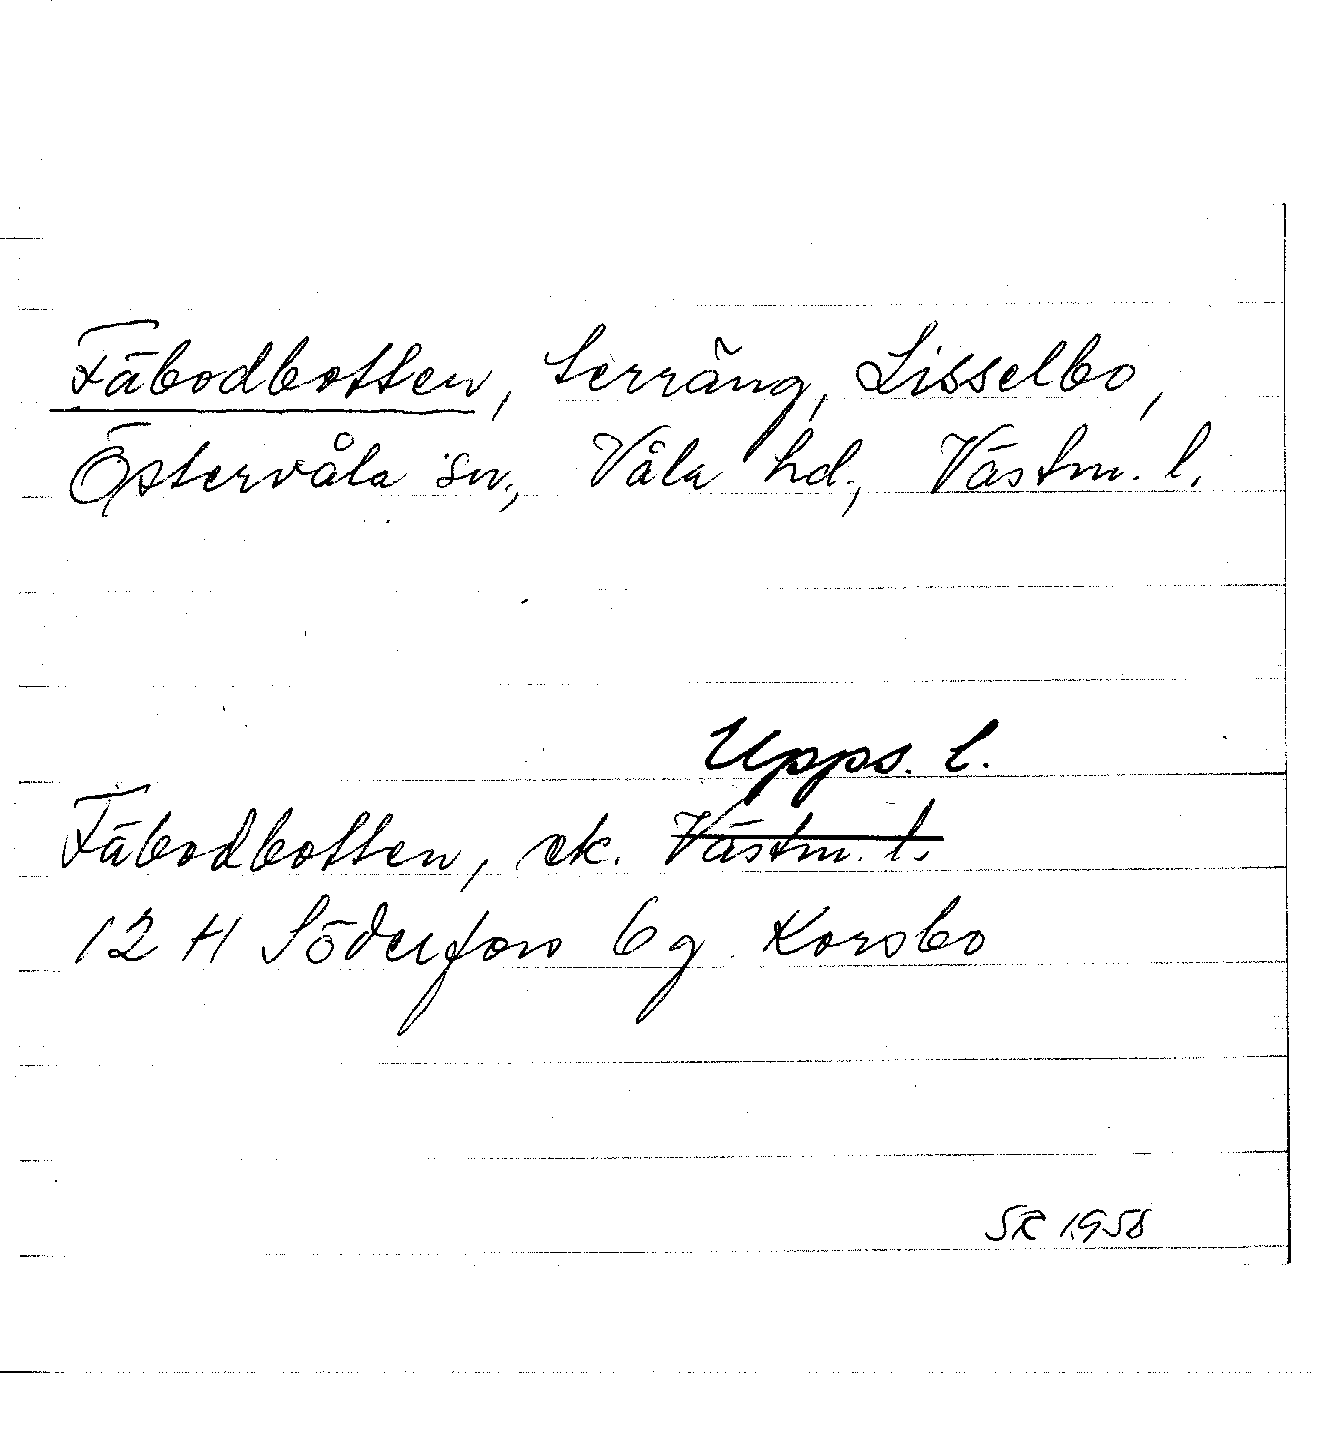 Fäbodbotten, terräng, Lisselbo,
Östervåla sn., Våla hd., Västm. l.
Upps. l.
Fäbodbotten, ek. Västm. l.
12 H Söderfors 6 g Korsbo
SR 1958